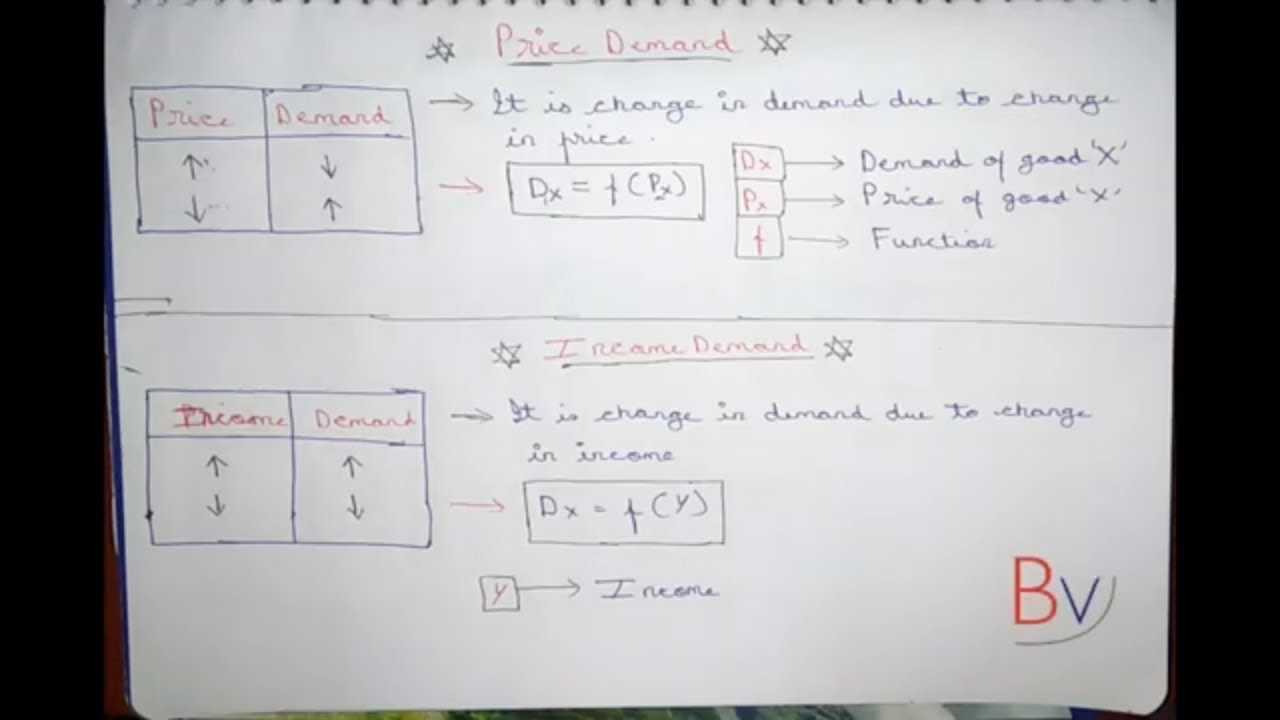 Price Demand
Price Demand
↑ ↓
↓ ↑
→ It is change in demand due to change
in price.
→ Dx = f(Px)
Dx → Demand of good 'X'
Px → Price of good 'X'
f → Function
Income Demand
Income Demand
↑ ↑
↓ ↓
→ It is change in demand due to change
in income
→ Dx = f(Y)
Y → Income
BV